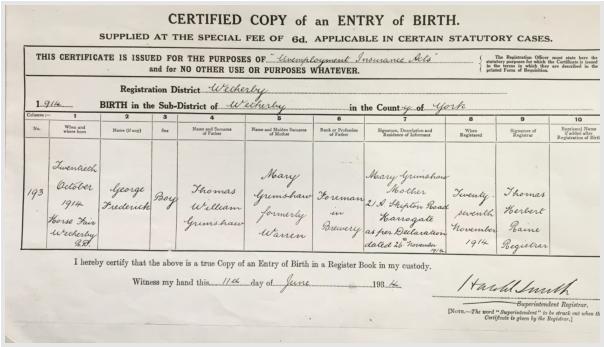 CERTIFIED COPY of an ENTRY OF BIRTH.
SUPPLIED AT THE SPECIAL FEE OF 6d. APPLICABLE IN CERTAIN STATUTORY CASES.
THIS CERTIFICATE IS ISSUED FOR THE PURPOSES OF "Unemployment Insurance Acts"
and for NO OTHER USE OR PURPOSES WHATEVER.
The Registration Officer must state here the
statutory purposes for which the Certificate is issued
in the terms in which they are described in the
printed Form of Requisition.
Registration District Wetherby
1914 BIRTH in the Sub-District of Wetherby in the County of York
Columns :— 1 2 3 4 5 6 7 8 9 10
No. When and where born Name (if any) Sex Name and Surname of Father Name and Maiden Surname of Mother Rank or Profession of Father Signature, Description and Residence of Informant When Registered Signature of Registrar Baptismal Name if added after Registration of Birth
193
Twentieth
October
1914
Horse Fair
Wetherby
George
Frederick
Boy
Thomas
William
Grimshaw
Mary
Grimshaw
formerly
Warren
Foreman
in
Brewery
Mary Grimshaw
Mother
21A Skipton Road
Harrogate
as per Declaration
dated 26th November
1914
Twenty
seventh
November
1914
Thomas
Herbert
Raine
Registrar
I hereby certify that the above is a true Copy of an Entry of Birth in a Register Book in my custody.
Witness my hand this 11th day of June 1934
Harold Smith
Superintendent Registrar.
[NOTE.—The word "Superintendent" to be struck out when the
Certificate is given by the Registrar.]